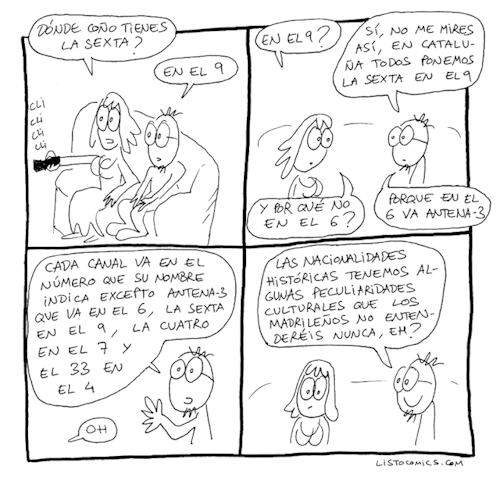 DÓNDE COÑO TIENES
LA SEXTA?
EN EL 9
CLI
CLI
CLI
CLI
EN EL 9?
SÍ, NO ME MIRES
ASÍ, EN CATALU-
ÑA TODOS PONEMOS
LA SEXTA EN EL 9
Y POR QUÉ NO
EN EL 6?
PORQUE EN EL
6 VA ANTENA-3
CADA CANAL VA EN EL
NÚMERO QUE SU NOMBRE
INDICA EXCEPTO ANTENA-3
QUE VA EN EL 6, LA SEXTA
EN EL 9, LA CUATRO
EN EL 7 Y
EL 33 EN
EL 4
OH
LAS NACIONALIDADES
HISTÓRICAS TENEMOS AL-
GUNAS PECULIARIDADES
CULTURALES QUE LOS
MADRILEÑOS NO ENTEN-
DERÉIS NUNCA, EH?
LISTOCOMICS.COM